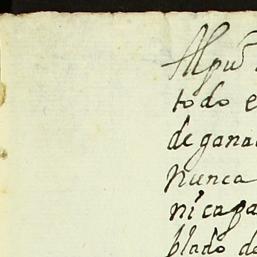 Alpu
todo e
de gana
nunca
ni capa
blado de